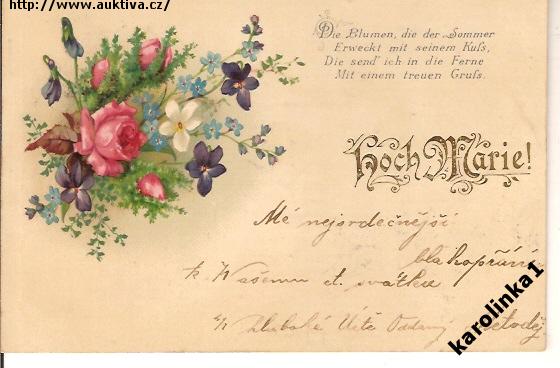 http://www.auktiva.cz/
Die Blumen, die der Sommer
Erweckt mit seinem Kuſs,
Die send' ich in die Ferne
Mit einem treuen Gruſs.
Hoch Marie!
Mé nejsrdečnější
blahopřání
k Vašemu ct. svátku
Hluboké Úctě Oddaný
karolinka1